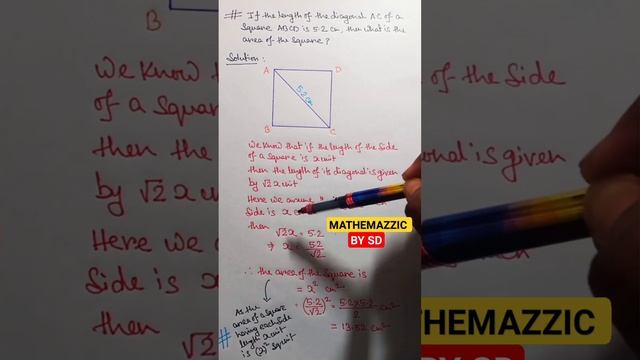 # If the length of the diagonal AC of a
square ABCD is 5.2 cm, then what is the
area of the square?
Solution:
A
D
5.2 cm
B
C
We know that if the length of the side
of a square is x unit
then the length of its diagonal is given
by √2 x unit
Here we assume
side is x
then
√2x = 5.2
⇒ x = 5.2/√2
∴ the area of the square is
= x² cm²
= (5.2/√2)² = 5.2×5.2/2 cm²
= 13.52 cm²
As the
area of a square
having each side
length x unit
# is (x)² sq unit
MATHEMAZZIC
BY SD
B
We know
of a squar
then the
by √2 x
Here we
side is
then
of the side
is given
THEMAZZIC
BY SD